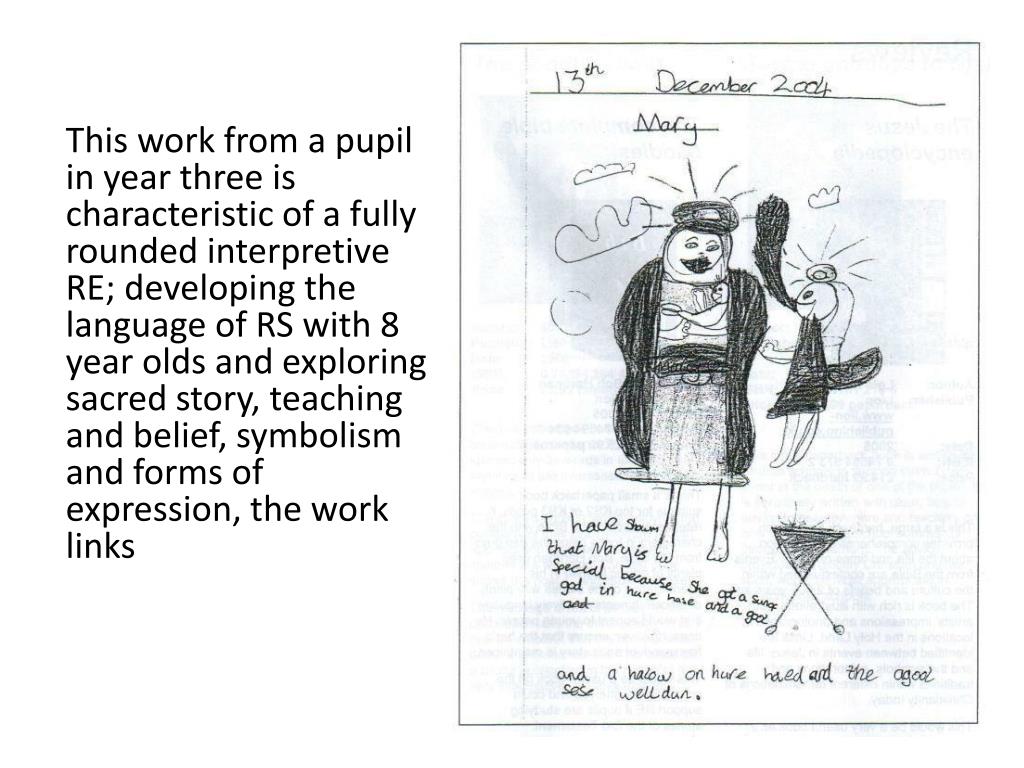 This work from a pupil
in year three is
characteristic of a fully
rounded interpretive
RE; developing the
language of RS with 8
year olds and exploring
sacred story, teaching
and belief, symbolism
and forms of
expression, the work
links
13th December 2004
Mary
I have shown
that Mary is
Special because She got a
god in hure hase and a gool
and
and a halow on hure haed and the agool
sese well dun.